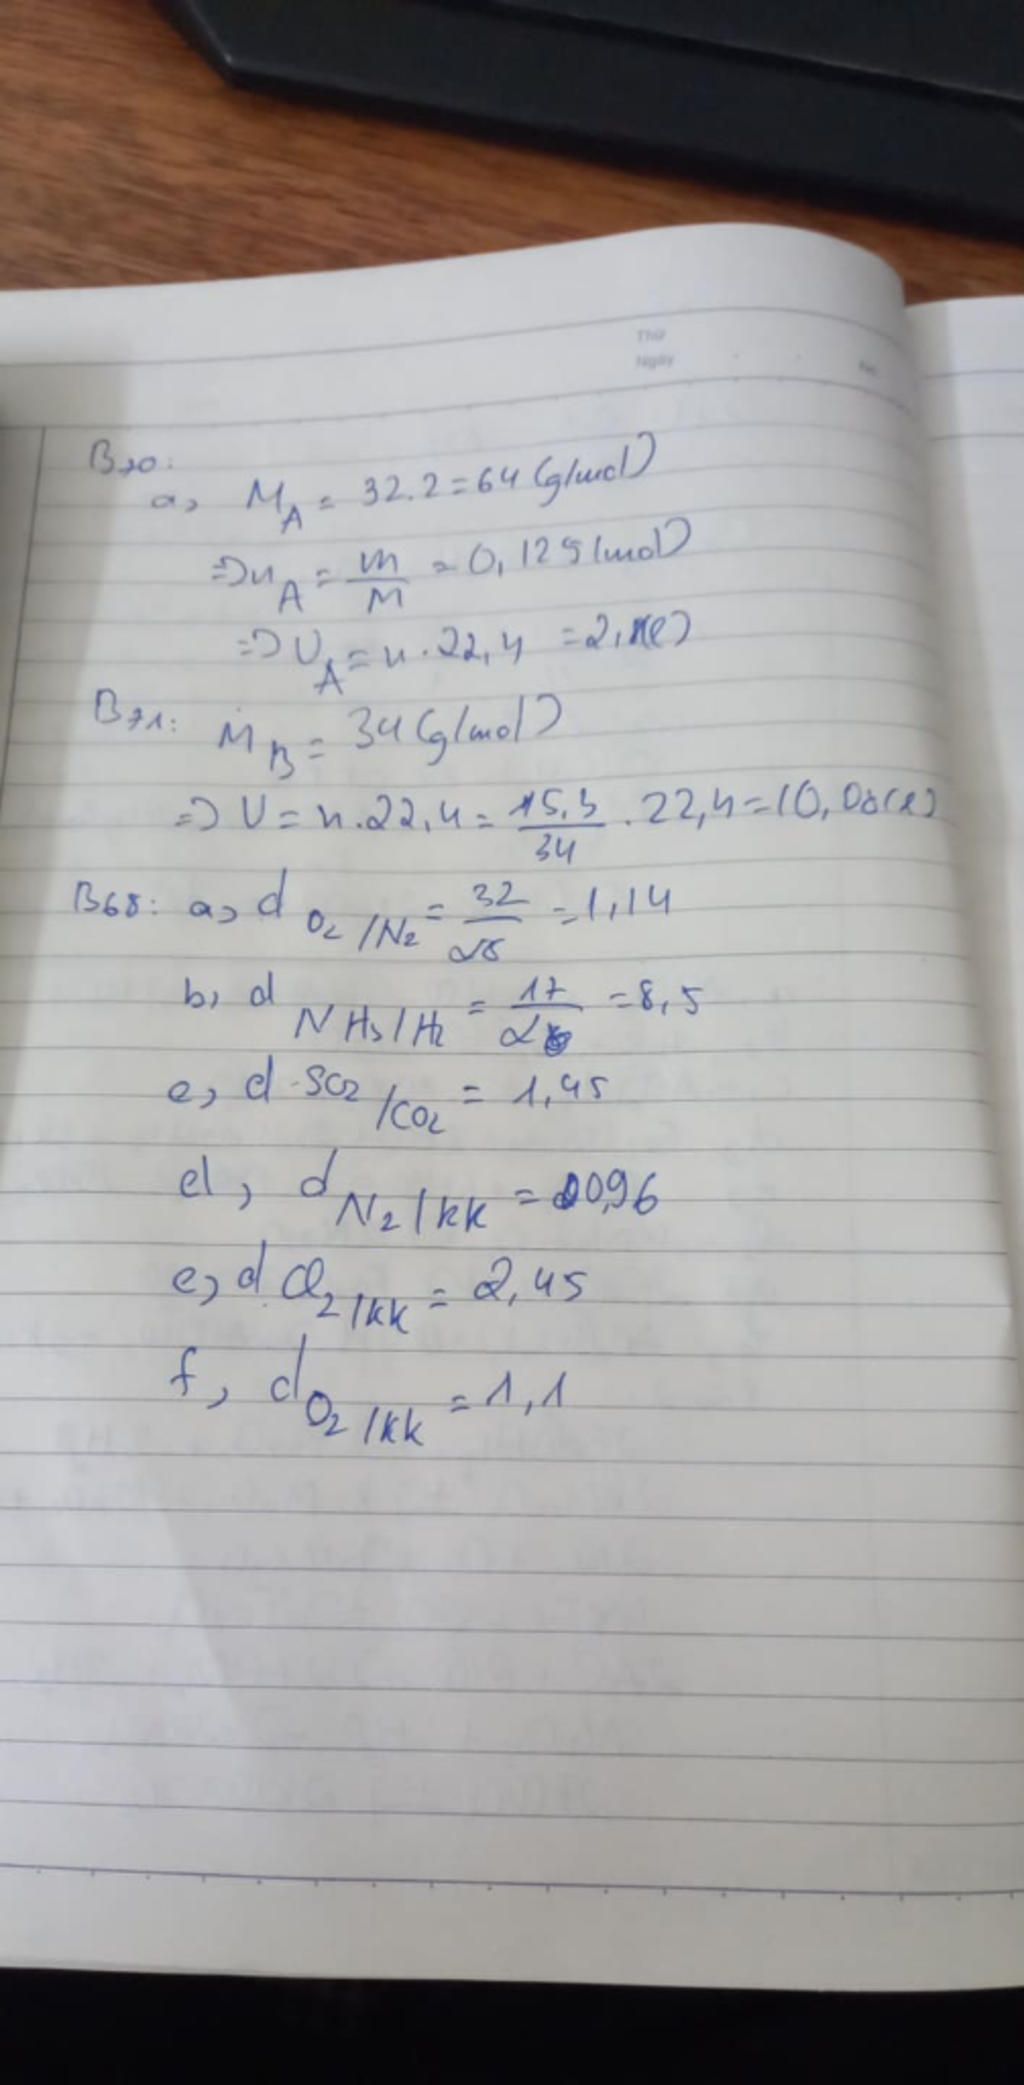 Thứ
Ngày
No
B70:
a, M_A = 32.2 = 64 (g/mol)
=> n_A = m/M = 0,125 (mol)
=> V_A = n.22,4 = 2,8(l)
B71: M_B = 34 (g/mol)
=> V = n.22,4 = 15,3/34 . 22,4 = 10,08(l)
B68: a, d O2/N2 = 32/28 = 1,14
b, d NH3/H2 = 17/2 = 8,5
c, d SO2/CO2 = 1,45
d, d N2/kk = 0,96
e, d Cl2/kk = 2,45
f, d O2/kk = 1,1